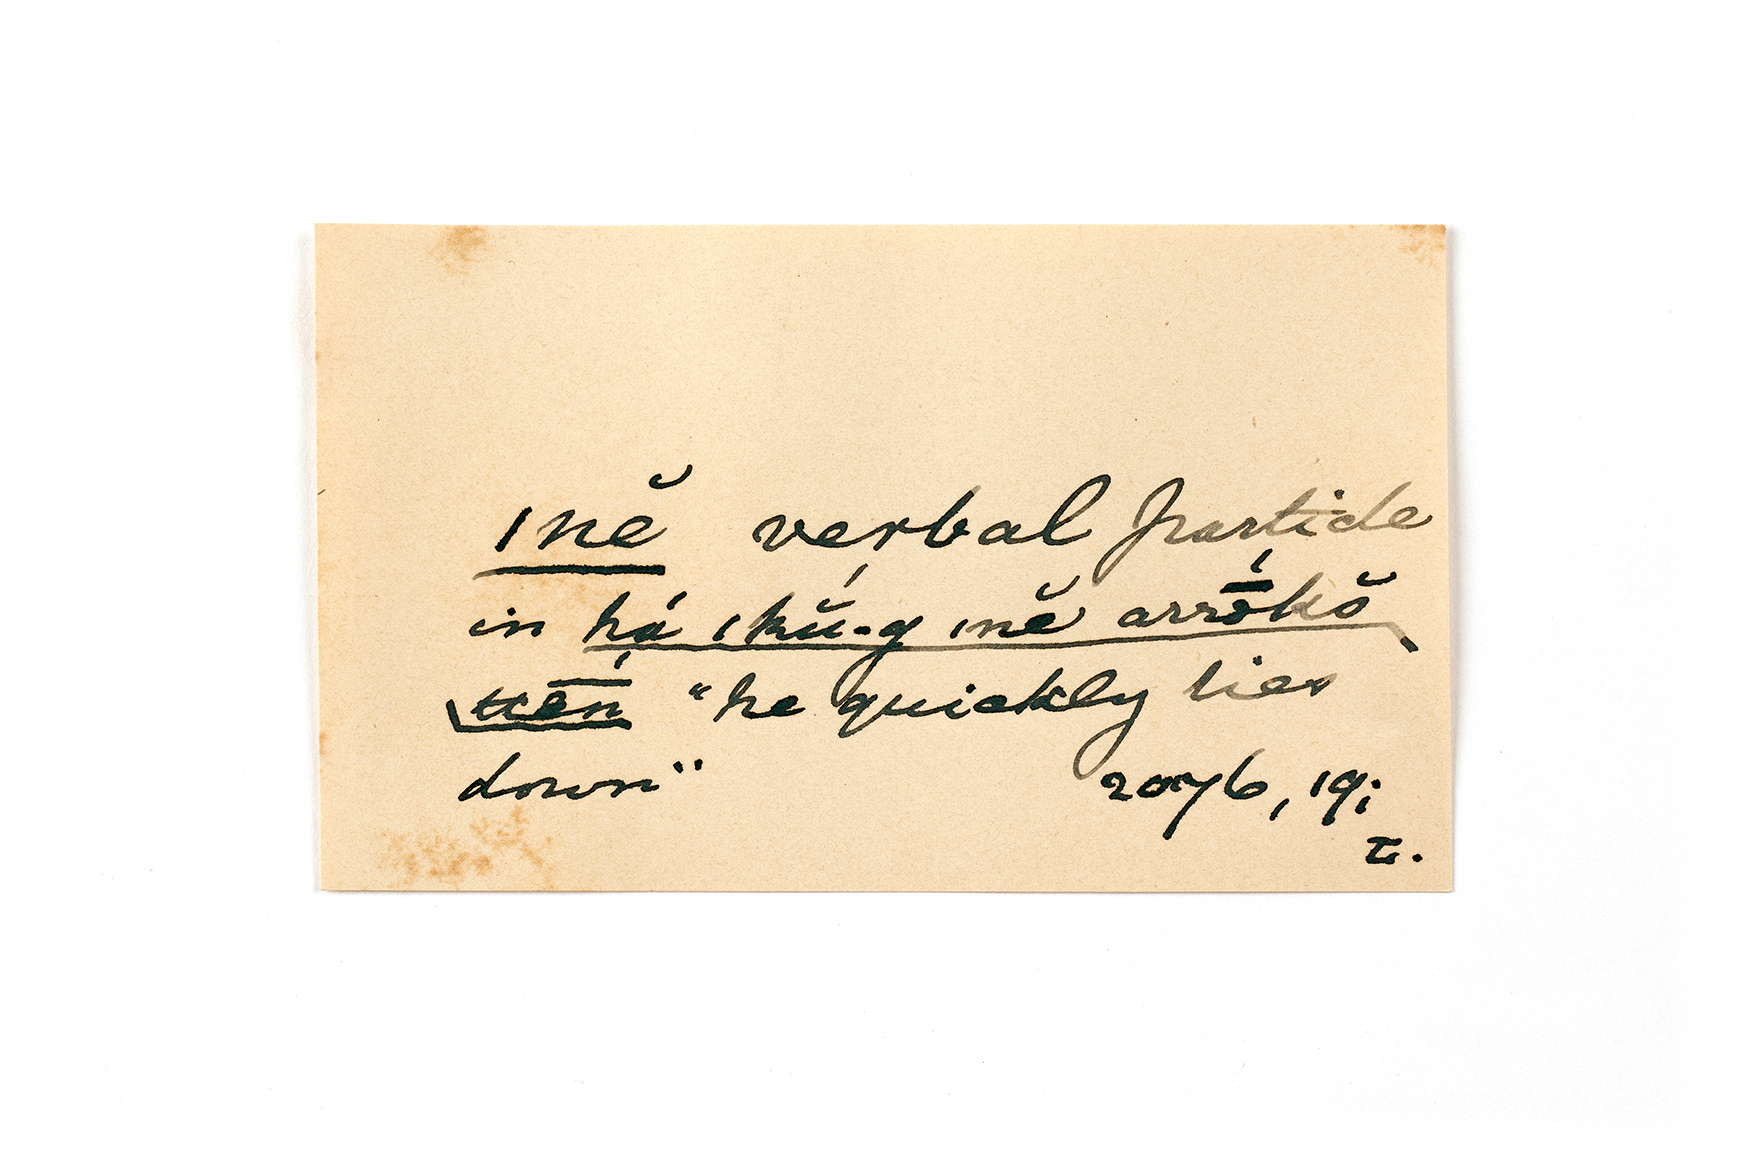 ınĕ verbal particle
in há ıkŭ́-g ınĕ arrṓkŏ
ttḗn "he quickly lies
down" 2076, 19;
I.